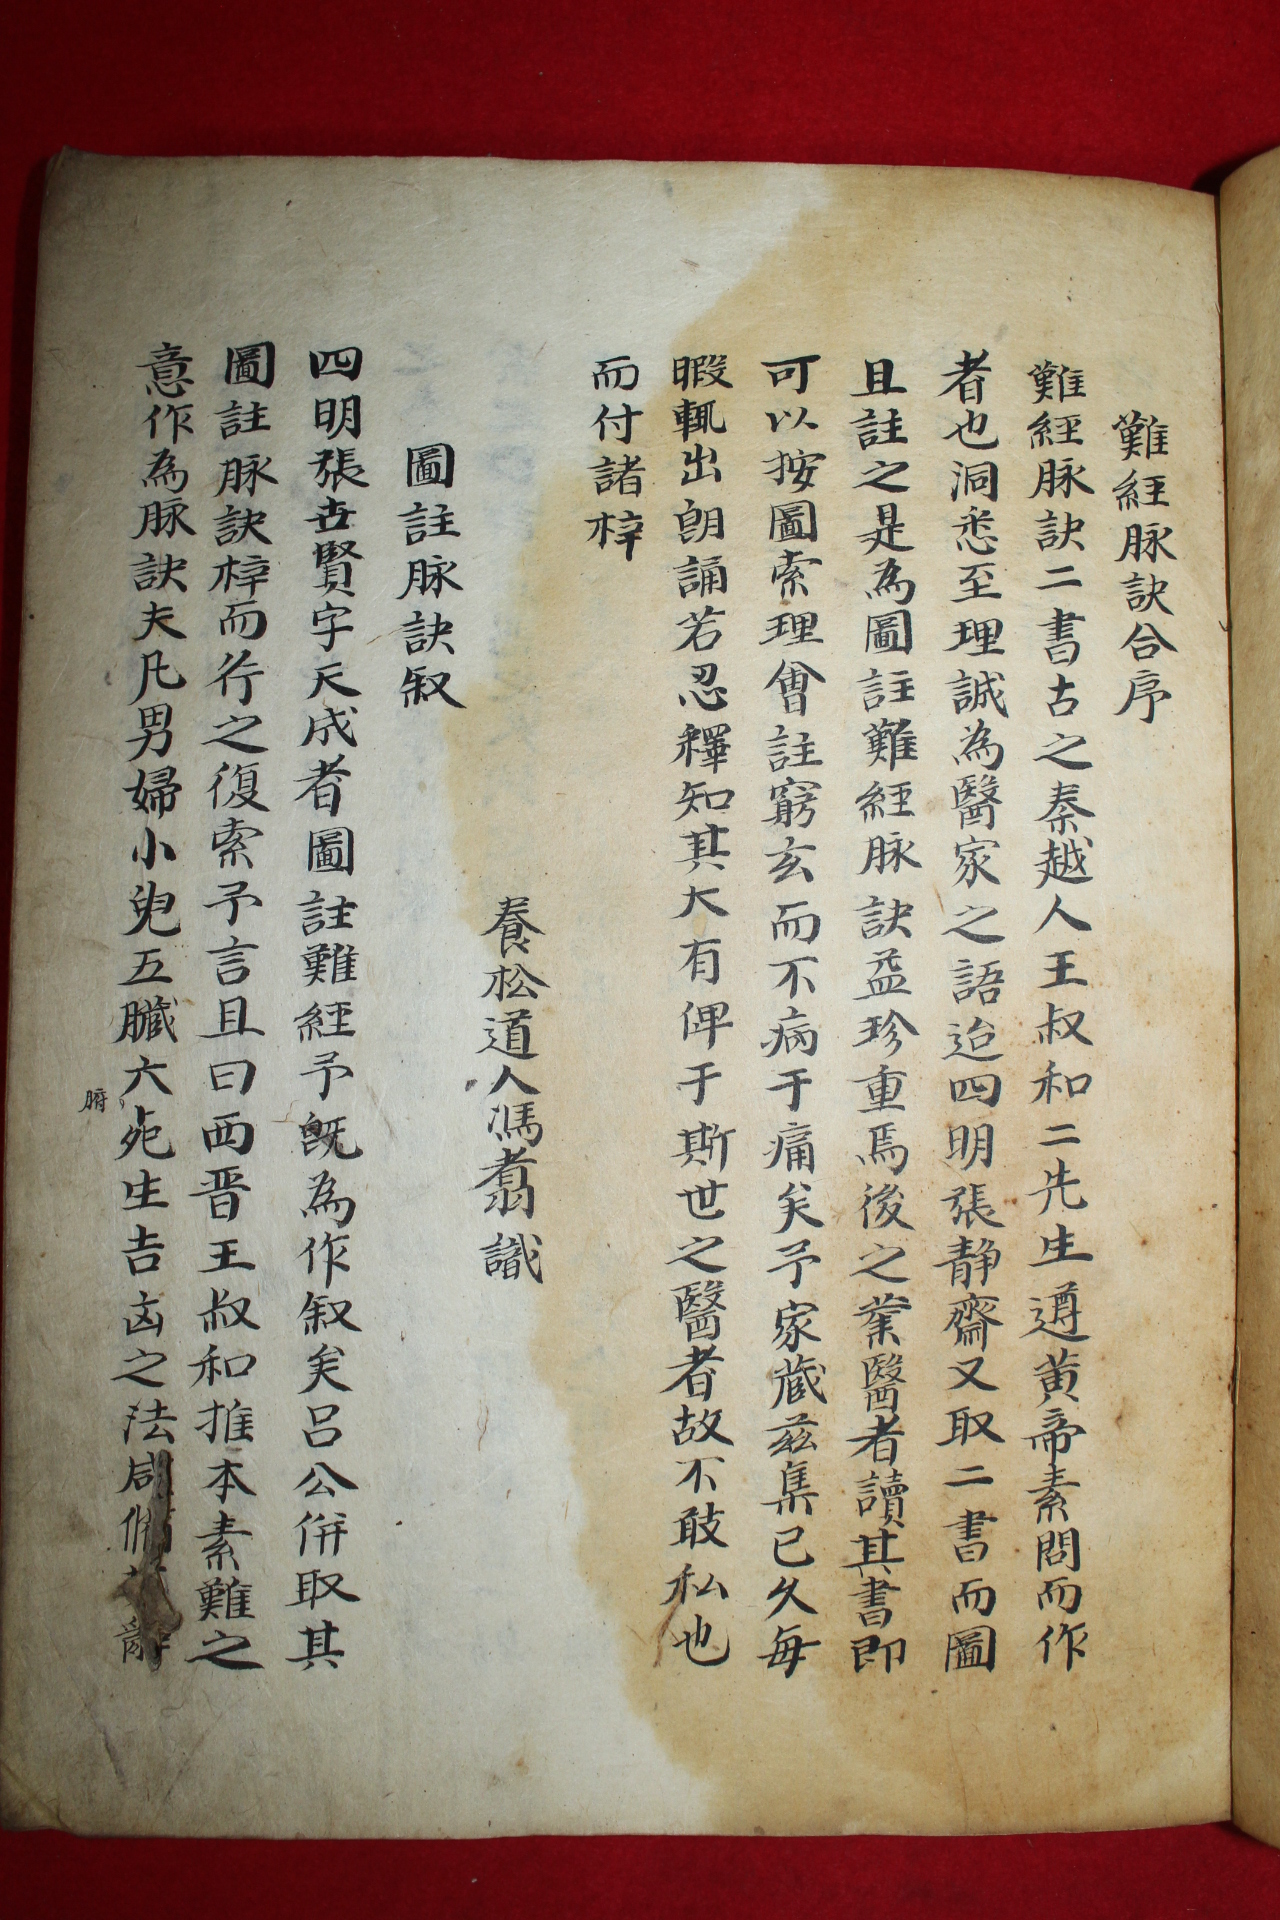 難經脉訣合序
難經脉訣二書古之秦越人王叔和二先生遵黄帝素問而作
者也洞悉至理誠為醫家之語迨四明張静齋又取二書而圖
且註之是為圖註難經脉訣益珍重焉後之業醫者讀其書即
可以按圖索理會註窮玄而不病于痛矣予家蔵兹集已久每
暇輒出朗誦若忍釋知其大有俾于斯世之醫者故不敢私也
而付諸梓
養松道人馮翥識
圖註脉訣叙
四明張世賢字天成者圖註難經予既為作叙矣吕公併取其
圖註脉訣梓而行之復索予言且曰西晋王叔和推本素難之
意作為脉訣夫凡男婦小兒五臓六死生吉凶之法
腑